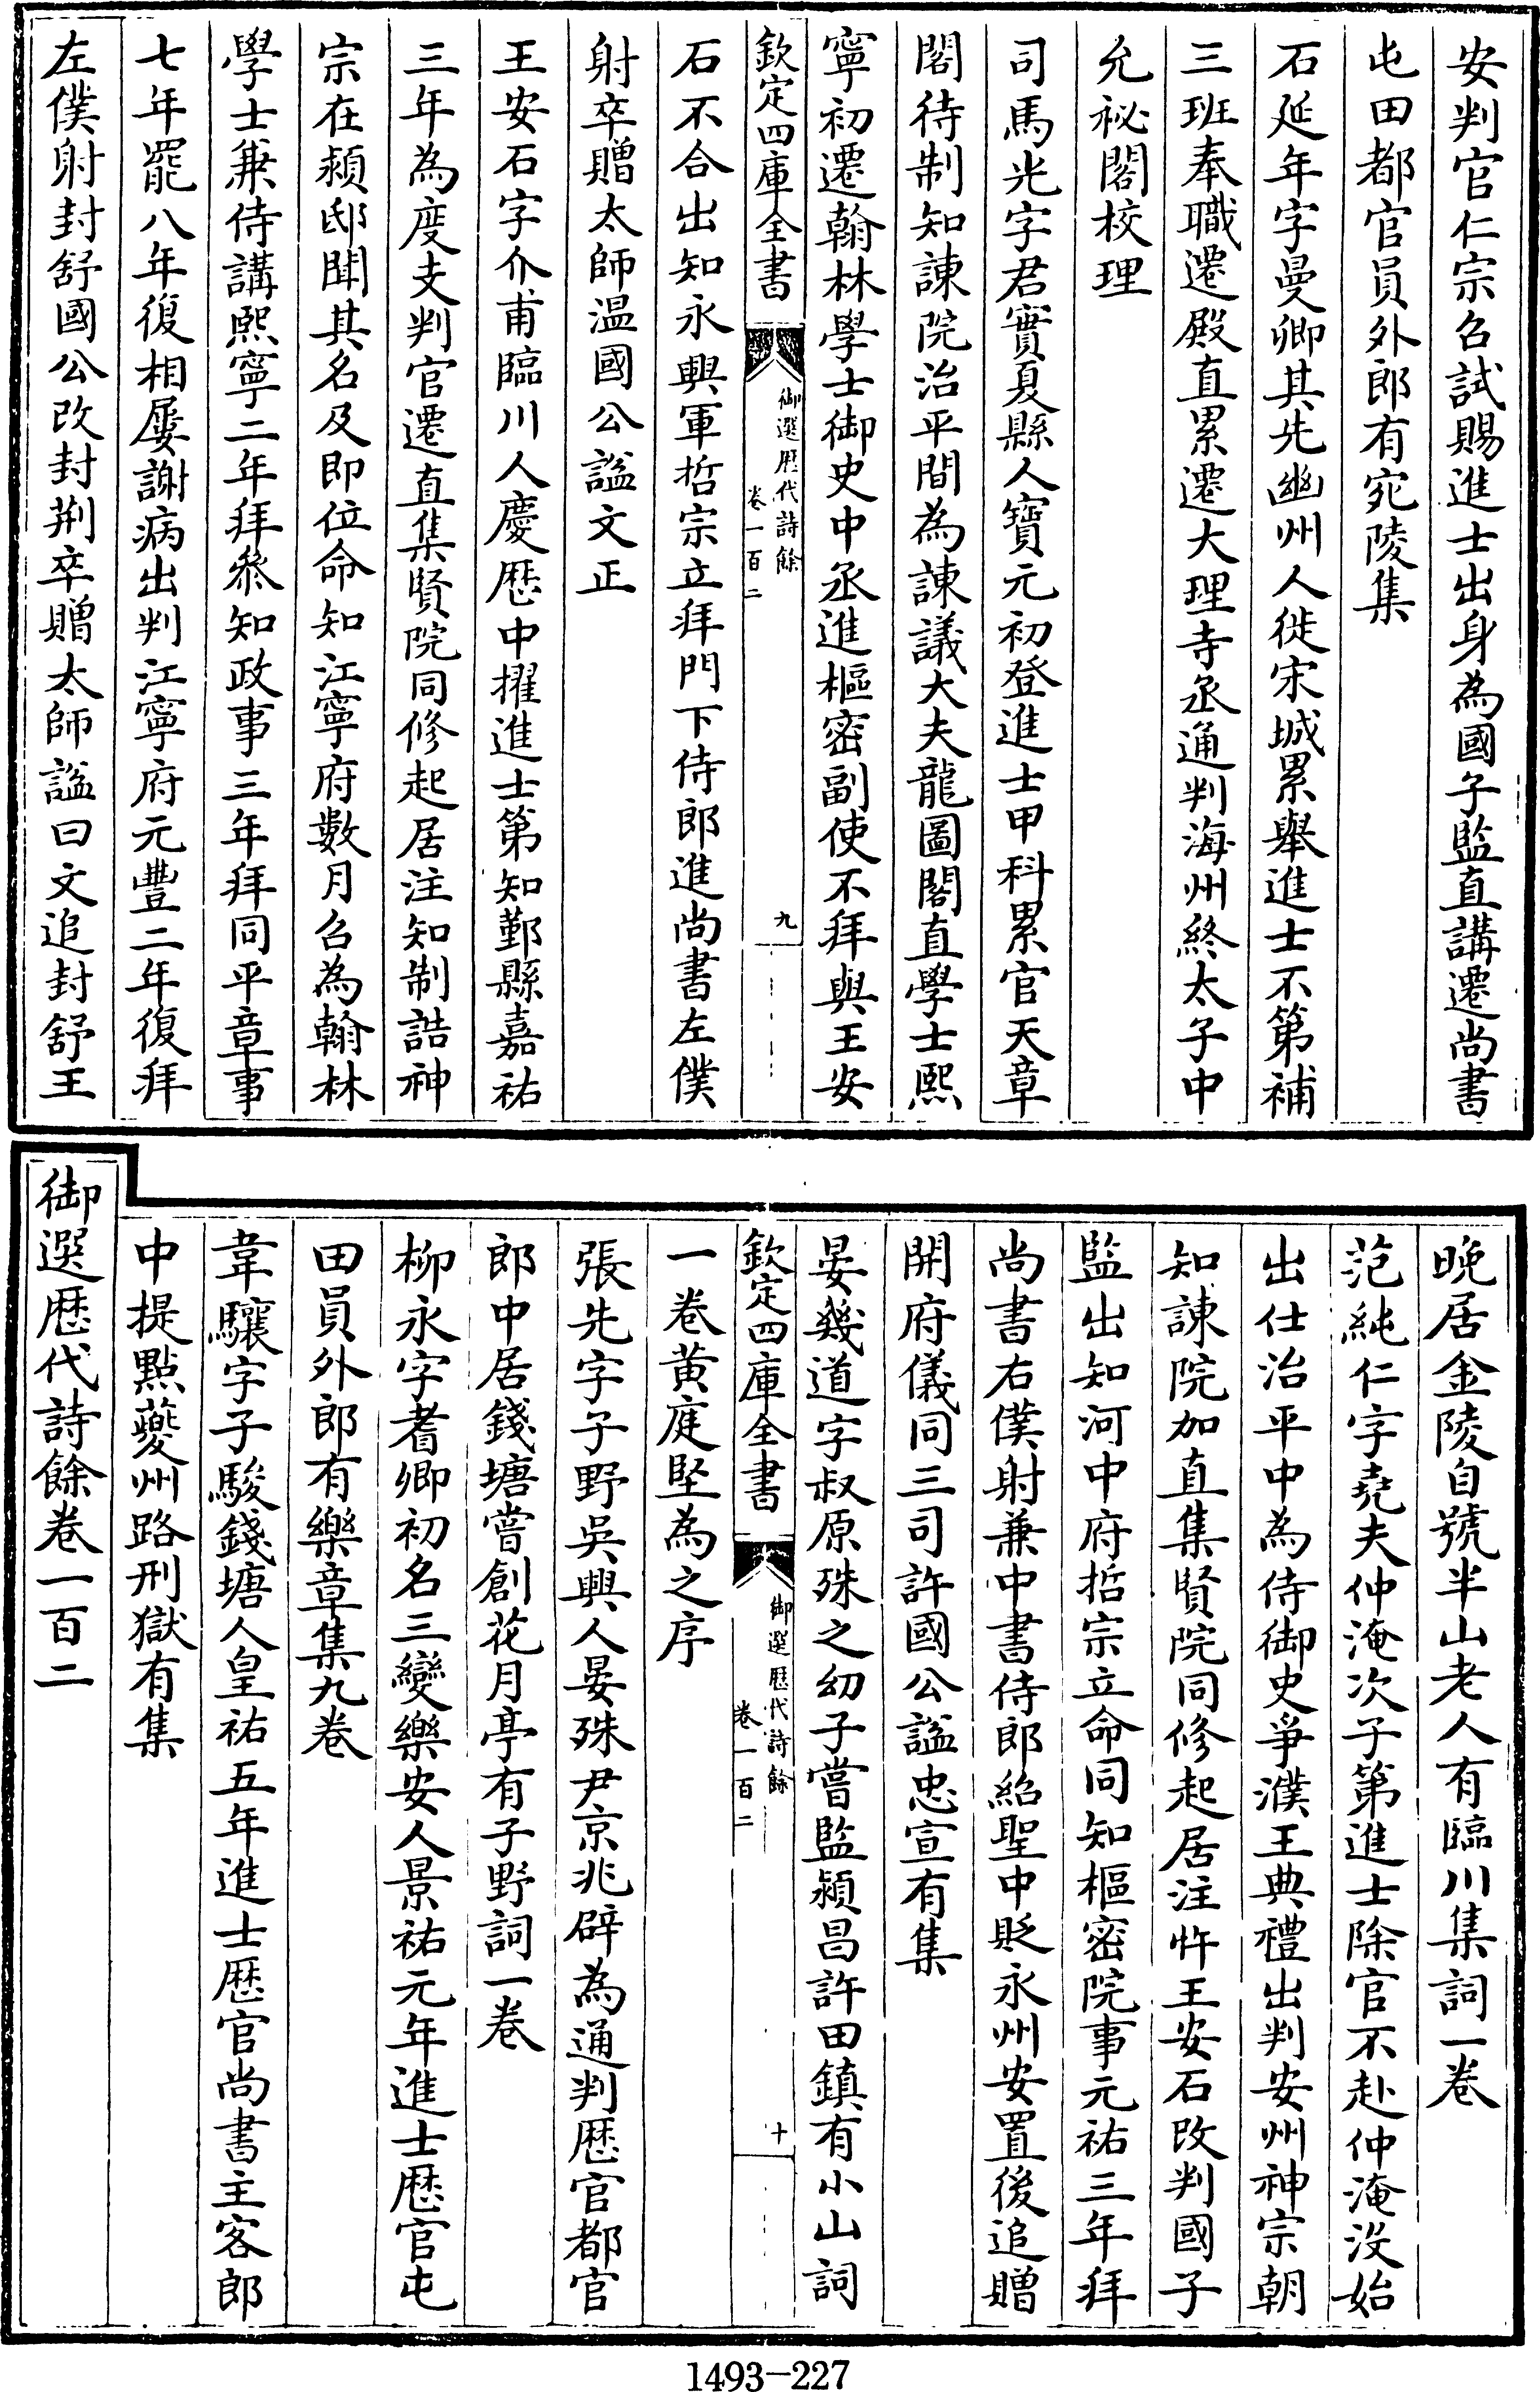 安判官仁宗召試賜進士出身為國子監直講遷尚書
屯田都官員外郎有宛陵集
石延年字曼卿其先幽州人徙宋城累舉進士不第補
三班奉職遷殿直累遷大理寺丞通判海州終太子中
允祕閣校理
司馬光字君實夏縣人寶元初登進士甲科累官天章
閣待制知諫院治平間為諫議大夫龍圖閣直學士熙
寧初遷翰林學士御史中丞進樞密副使不拜與王安
欽定四庫全書
御選歷代詩餘
卷一百二
九
石不合出知永興軍哲宗立拜門下侍郎進尚書左僕
射卒贈太師温國公諡文正
王安石字介甫臨川人慶歷中擢進士第知鄞縣嘉祐
三年為度支判官遷直集賢院同修起居注知制誥神
宗在潁邸聞其名及即位命知江寧府數月召為翰林
學士兼侍講熙寧二年拜叅知政事三年拜同平章事
七年罷八年復相屢謝病出判江寧府元豐二年復拜
左僕射封舒國公改封荆卒贈太師諡曰文追封舒王
晚居金陵自號半山老人有臨川集詞一卷
范純仁字堯夫仲淹次子第進士除官不赴仲淹沒始
出仕治平中為侍御史爭濮王典禮出判安州神宗朝
知諫院加直集賢院同修起居注忤王安石改判國子
監出知河中府哲宗立命同知樞密院事元祐三年拜
尚書右僕射兼中書侍郎紹聖中貶永州安置後追贈
開府儀同三司許國公諡忠宣有集
晏幾道字叔原殊之幼子嘗監潁昌許田鎮有小山詞
欽定四庫全書
御選歷代詩餘
卷一百二
十
一卷黄庭堅為之序
張先字子野吳興人晏殊尹京兆辟為通判歷官都官
郎中居錢塘嘗創花月亭有子野詞一卷
柳永字耆卿初名三變樂安人景祐元年進士歷官屯
田員外郎有樂章集九卷
韋驤字子駿錢塘人皇祐五年進士歷官尚書主客郎
中提點夔州路刑獄有集
御選歷代詩餘卷一百二
1493-227